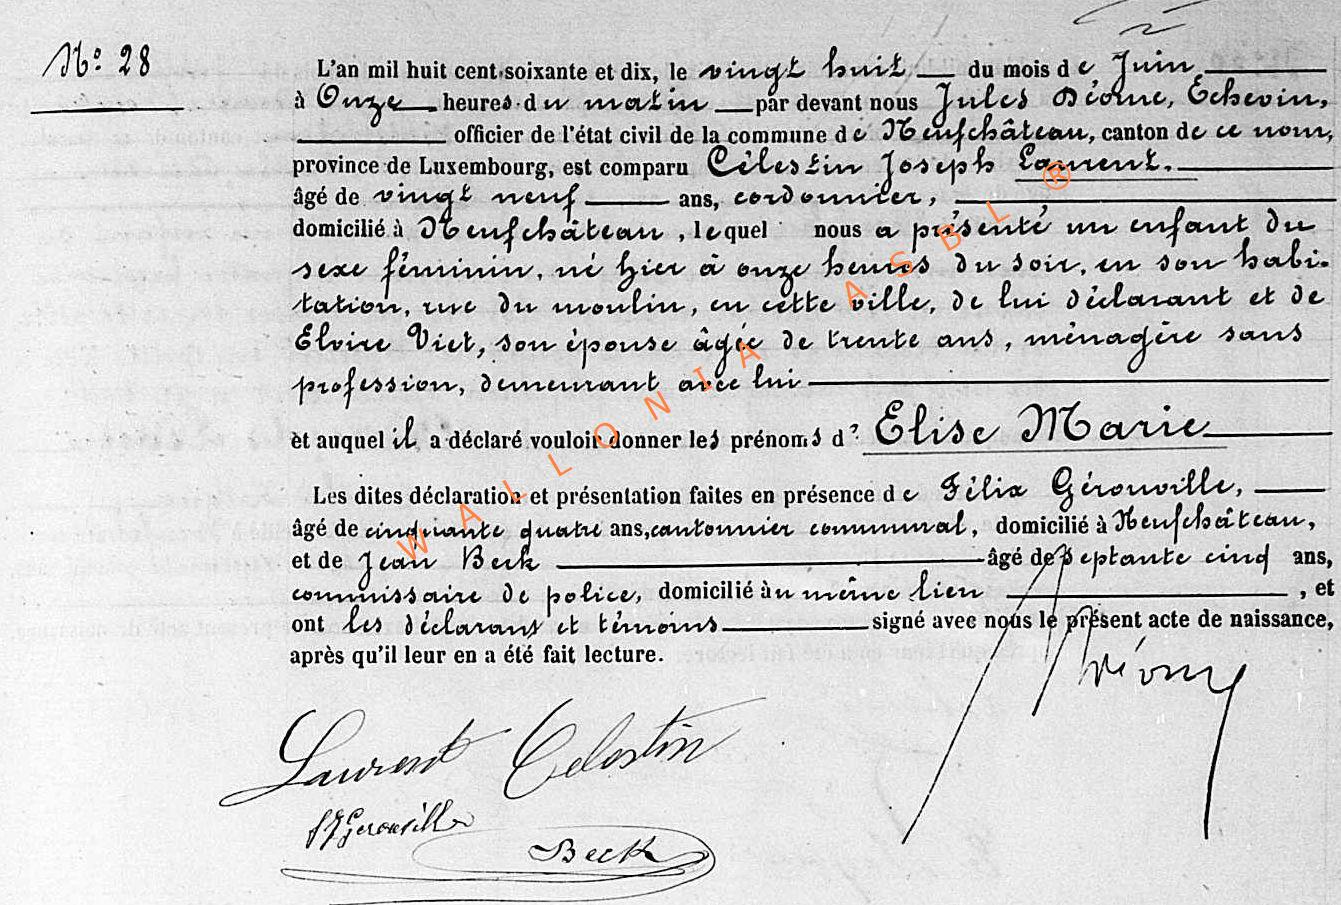 N° 28
L'an mil huit cent soixante et dix, le vingt huit, du mois de Juin,
à Onze heures du matin par devant nous Jules Déome, Echevin,
officier de l'état civil de la commune de Neufchâteau, canton de ce nom,
province de Luxembourg, est comparu Célestin Joseph Laurent.
âgé de vingt neuf ans, cordonnier,
domicilié à Neufchâteau, lequel nous a présenté un enfant du
sexe féminin, né hier à onze heures du soir, en son habi-
tation, rue du moulin, en cette ville, de lui déclarant et de
Elvire Viet, son épouse âgée de trente ans, ménagère sans
profession, demeurant avec lui
et auquel il a déclaré vouloir donner les prénoms d' Elise Marie
Les dites déclaration et présentation faites en présence de Félix Gérouville,
âgé de cinquante quatre ans, cantonnier communal, domicilié à Neufchâteau,
et de Jean Beck âgé de septante cinq ans,
commissaire de police, domicilié au même lieu, et
ont les déclarans et témoins signé avec nous le présent acte de naissance,
après qu'il leur en a été fait lecture.
Laurent Celestin
Gerouville
Beck
WALLONIA ASBL ®